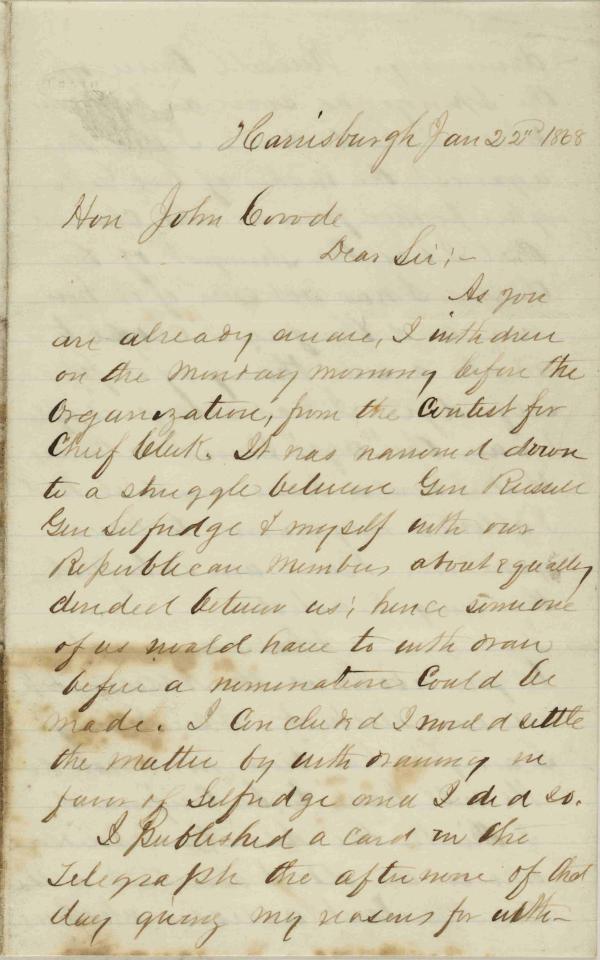 Harrisburgh Jan 22nd 1868
Hon John Covode
Dear Sir;-
As you
are already aware, I withdrew
on the Monday morning before the
Organization, from the Contest for
Chief Clerk. It was narrowed down
to a struggle between Gen Russell
Gen Selfridge & myself with our
Republican Members about Equally
divided between us; hence some one
of us would have to withdraw
before a nomination Could be
made. I Concluded I would settle
the matter by withdrawing in
favor of Selfridge and I did so.
I Published a card in the
Telegraph the afternoone of that
day giving my reasons for with-